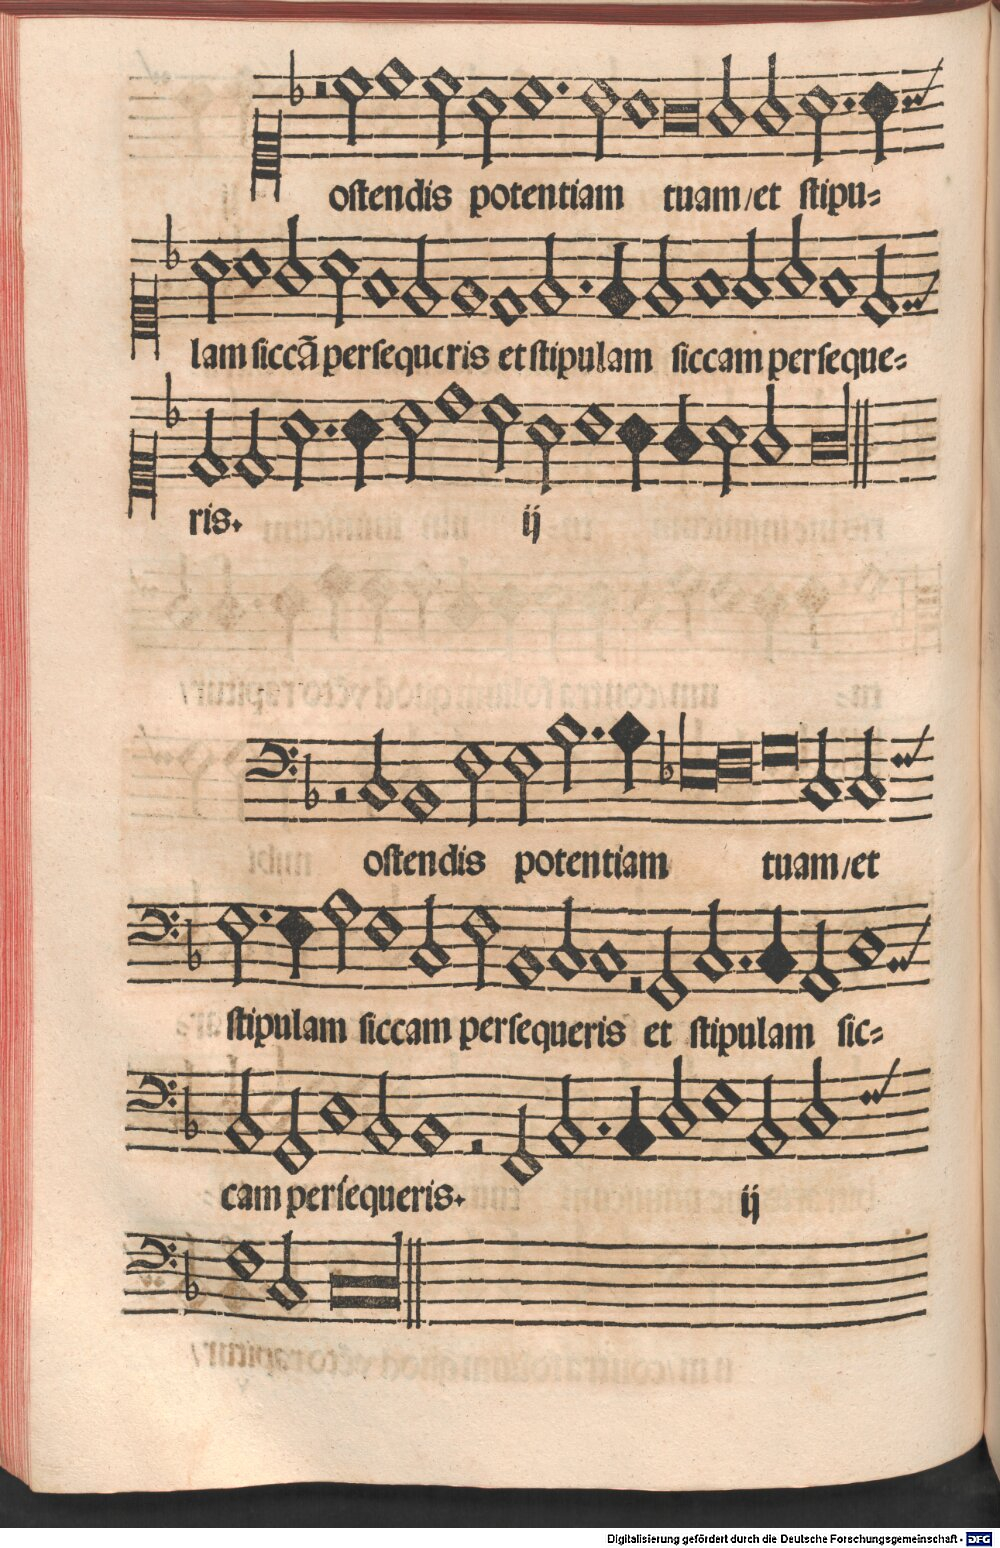 ostendis potentiam tuam/et stipu=
lam siccã persequeris et stipulam siccam perseque=
ris. ij
ostendis potentiam tuam/et
stipulam siccam persequeris et stipulam sic=
cam persequeris. ij
Digitalisierung gefördert durch die Deutsche Forschungsgemeinschaft - DFG